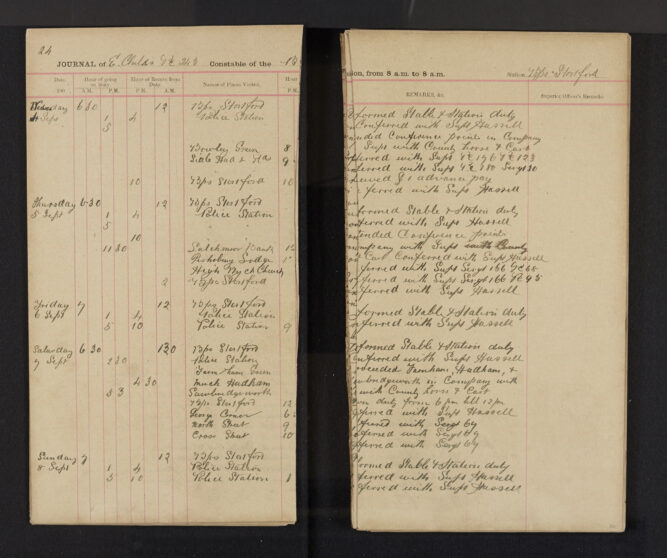 24
JOURNAL of E. Childs PC 243 Constable of the
Date. Hour of going on Duty. Hour of Return from Duty. Names of Places Visited. Hour
190 A.M. P.M. P.M. A.M. P.M.
Wednesday 6 30 12 B/ps Stortford
4 Sept 1 4 Police Station
5
Green 8
Hall & 9
10 B/ps Stortford 10
Thursday 6.30 12 B/ps Stortford
5 Sept 1 4 Police Station
5
10
11 30 12
Lodge 1
High Wych Church
2 B/ps Stortford
Friday 7 12 B/ps Stortford
6 Sept 1 4 Police Station
5 10 Police Station 9
Saturday 6 30 B/ps Stortford
7 Sept 2 30 Police Station
Farnham Green
4 30 Much Hadham
5 3 Sawbridgeworth
B/ps Stortford 12
George Corner 6
North Street 9
Cross Street 10
Sunday 7 12 B/ps Stortford
8 Sept 1 4 Police Station
5 10 Police Station 1
ision, from 8 a.m. to 8 a.m. Station, B/ps Stortford
REMARKS, &c. Superior Officer's Remarks.
formed Stable & Station duty
Conferred with Supt Hassell
nded Conference points in Company
Supt with County horse & Cart
ferred with Supt PC 196 PC 123
ferred with Supt PC 180 Sergt 30
ceived £1 advance pay
ferred with Supt Hassell
formed Stable & Station duty
onferred with Supt Hassell
tended Conference points
ompany with Supt with County
Cart Conferred with Supt Hassell
ferred with Supt Sergt 166 PC 68
ferred with Supt Sergt 166 PC 95
nferred with Supt Hassell
formed Stable & Station duty
nferred with Supt Hassell
formed Stable & Station duty
nferred with Supt Hassell
ceeded Farnham, Hadham, &
wbridgeworth in Company with
with County horse & Cart
on duty from 6 pm till 12 pm
ferred with Supt Hassell
ferred with Sergt 69
ferred with Sergt 69
ferred with Sergt 69
formed Stable & Station duty
ferred with Supt Hassell
ferred with Supt Hassell